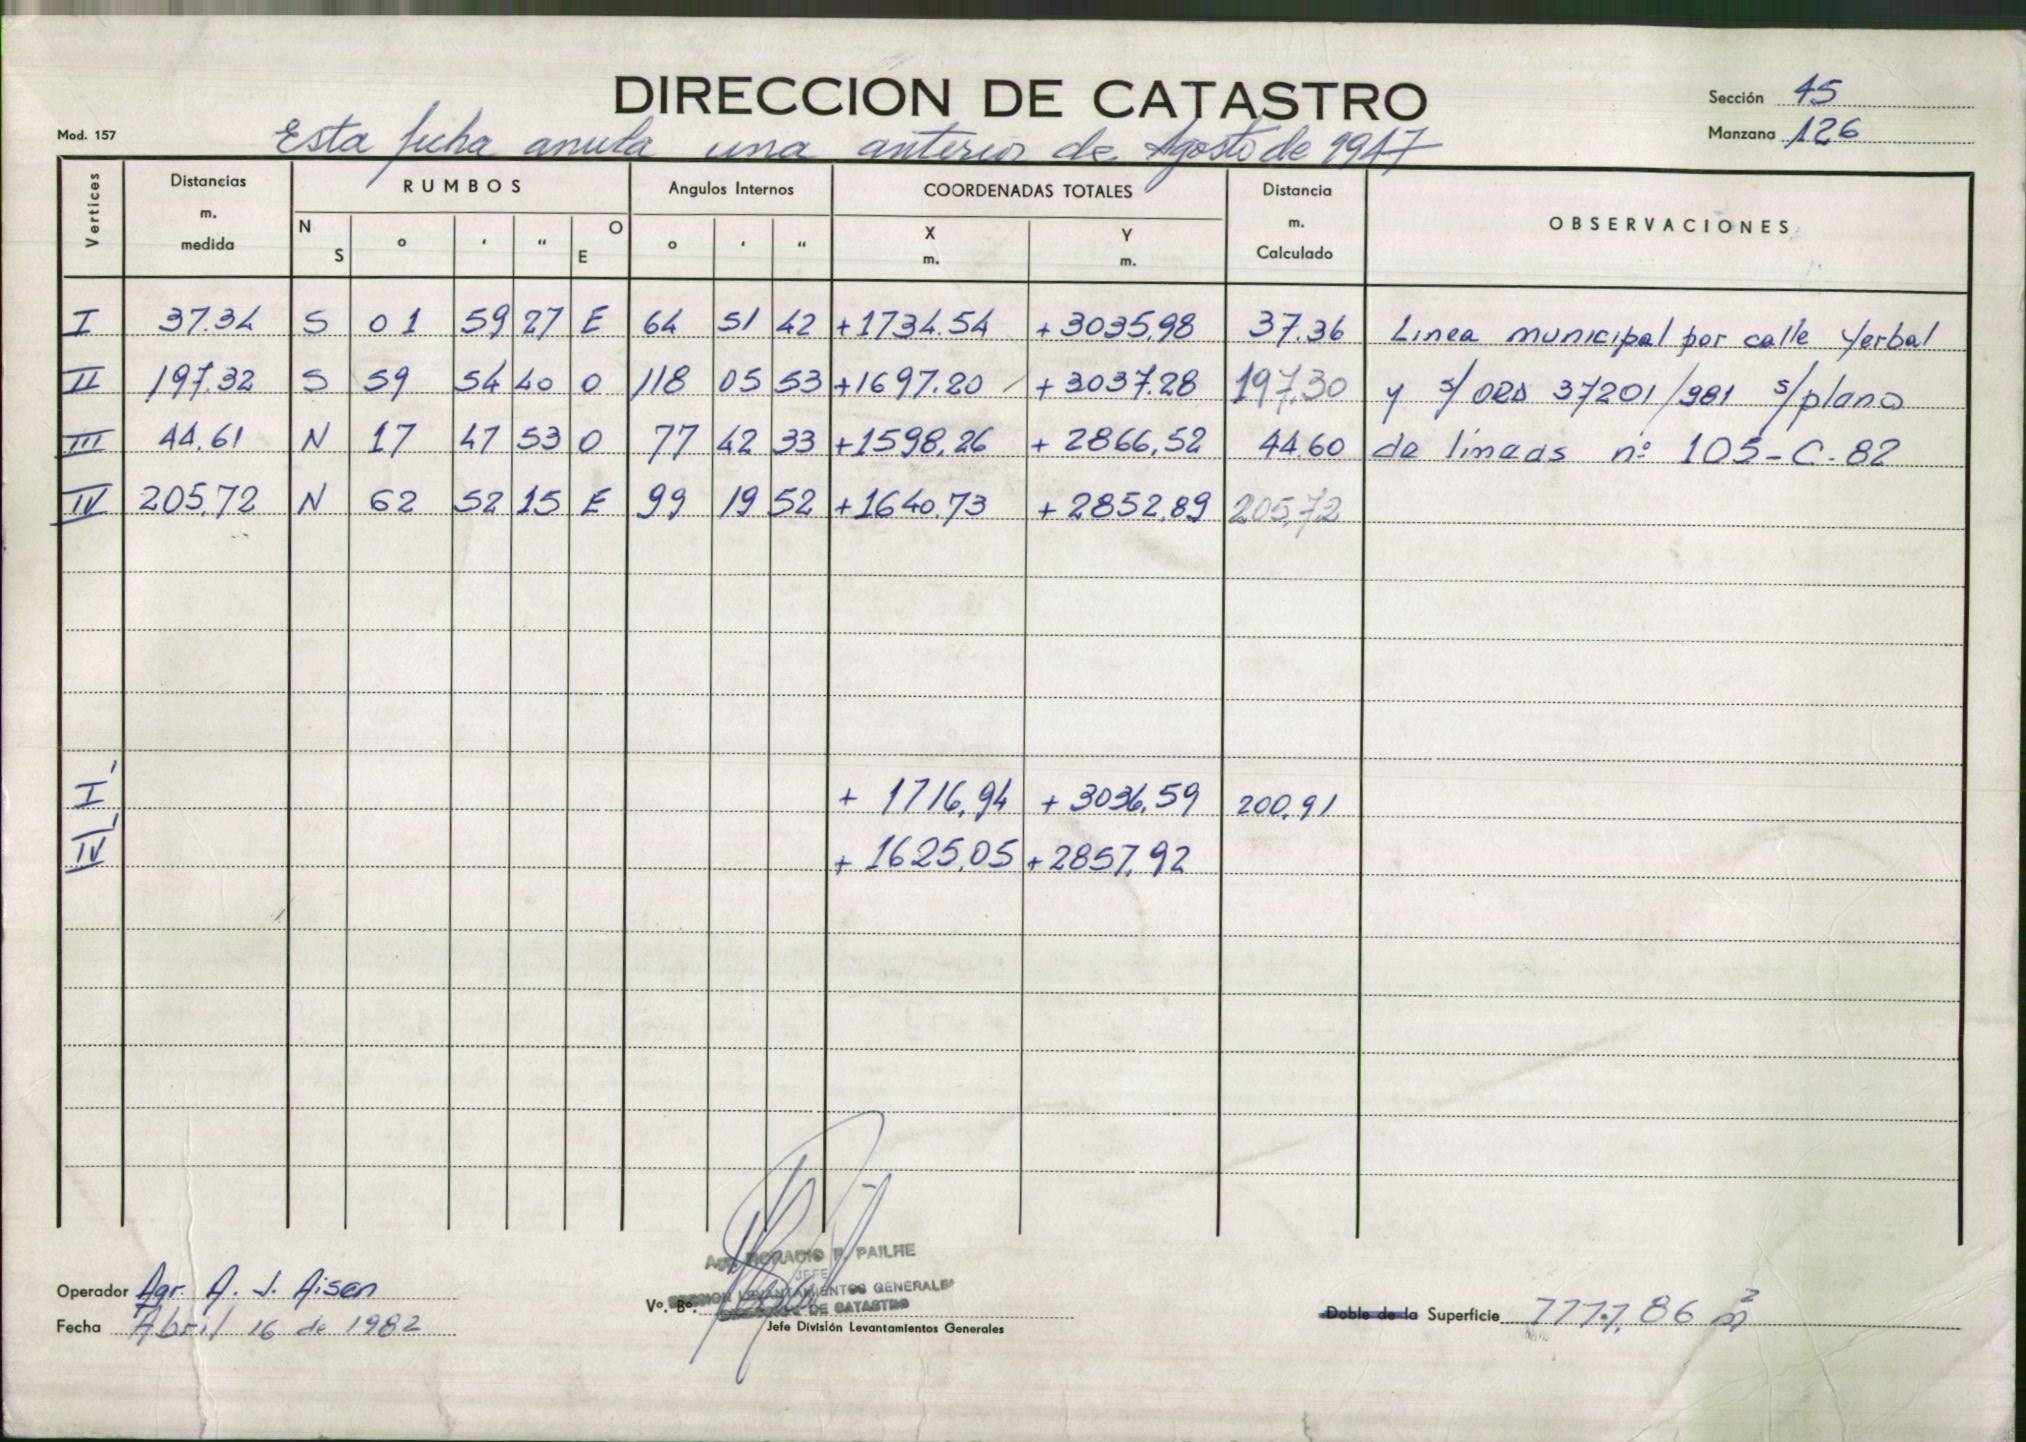 DIRECCION DE CATASTRO
Sección 45
Manzana 126
Mod. 157
Esta ficha anula una anterior de Agosto de 1947
Vertices Distancias m. medida RUMBOS N S o ' " O E Angulos Internos o ' " COORDENADAS TOTALES X m. Y m. Distancia m. Calculado OBSERVACIONES
I 37.34 S 01 59 27 E 64 51 42 +1734.54 +3035,98 37.36 Linea municipal por calle Yerbal
II 197.32 S 59 54 40 O 118 05 53 +1697.20 +3037.28 197,30 y s/ ORD 37201/981 s/plano
III 44.61 N 17 47 53 O 77 42 33 +1598,26 +2866,52 44.60 de lineas nº 105-C-82
IV 205,72 N 62 52 15 E 99 19 52 +1640.73 +2852,89 205,72
I' +1716,94 +3036,59 200,91
IV' +1625,05 +2857,92
Agr. HORACIO P. PAILHE
JEFE
SECCION LEVANTAMIENTOS GENERALES
DIRECCION DE CATASTRO
Operador Agr. A. J. Aisen
Fecha Abril 16 de 1982
Vº. Bº.
Jefe División Levantamientos Generales
Doble de la Superficie 7777,86 m²